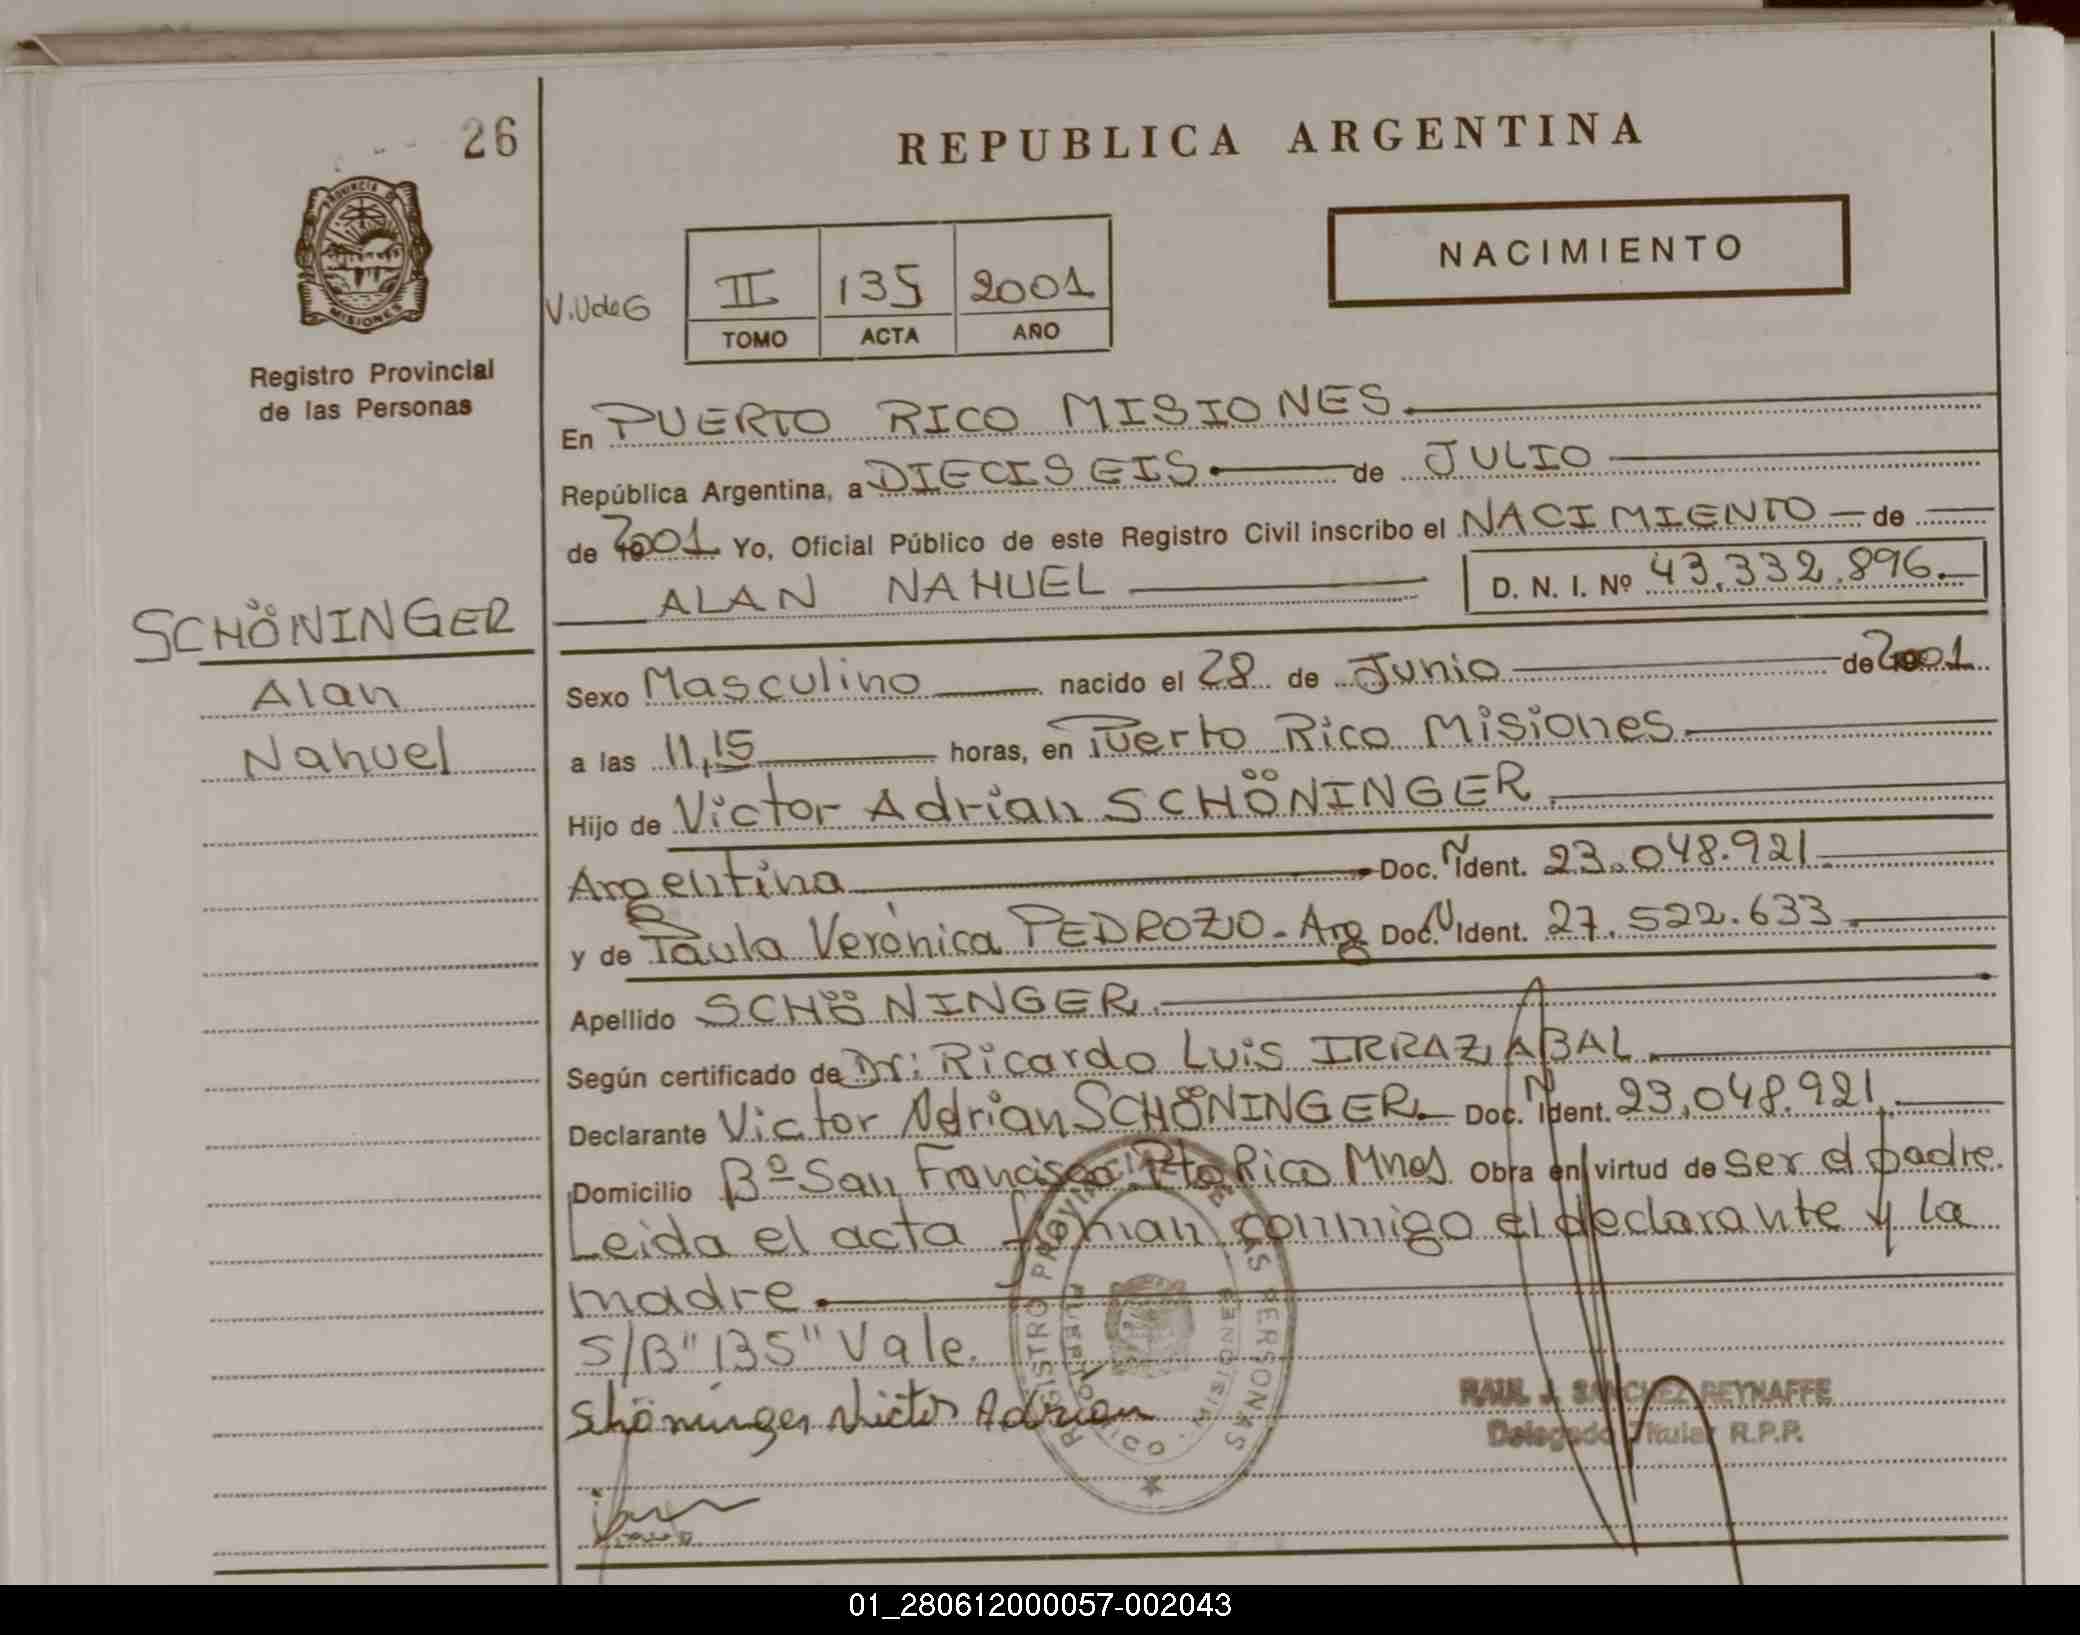 26
REPUBLICA ARGENTINA
PROVINCIA DE
MISIONES
NACIMIENTO
V.UdeG
II 135 2001
TOMO ACTA AÑO
Registro Provincial
de las Personas
En PUERTO RICO MISIONES.
República Argentina, a DIECISEIS de JULIO
de 2001 Yo, Oficial Público de este Registro Civil inscribo el NACIMIENTO de
ALAN NAHUEL D. N. I. Nº 43.332.896.
SCHÖNINGER
Alan
Nahuel
Sexo Masculino nacido el 28 de Junio de 2001
a las 11,15 horas, en Puerto Rico Misiones.
Hijo de Victor Adrian SCHÖNINGER.
Argentina Doc. N Ident. 23.048.921
y de Paula Verónica PEDROZO - Arg Doc. N Ident. 27.522.633.
Apellido SCHÖNINGER.
Según certificado de Dr: Ricardo Luis IRRAZABAL.
Declarante Victor Adrian SCHÖNINGER. Doc. N Ident. 23.048.921.
Domicilio Bº San Francisco. Pto Rico Mnes Obra en virtud de ser el padre.
Leida el acta firman conmigo el declarante y la
madre.
S/B "135" Vale.
Schöninger Victor Adrian
REGISTRO PROVINCIAL DE LAS PERSONAS
PUERTO RICO - MISIONES
RAUL J. SANCHEZ REYNAFFE
Delegado Titular R.P.P.
01_280612000057-002043